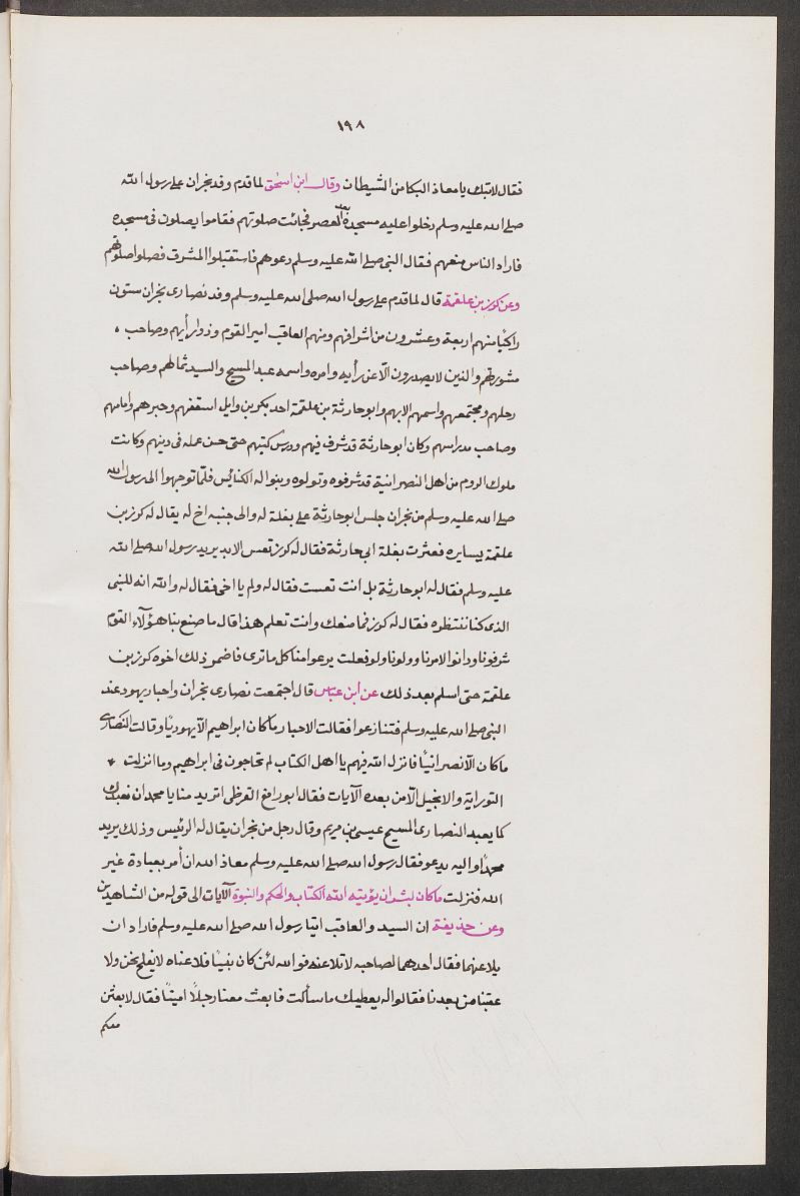 ١٩٨
فقال لا تبك يا معاذ البكا من الشيطان وقال ابن اسحٰق لما قدم وفد نجران على رسول الله
صلى الله عليه وسلم دخلوا عليه مسجده بعد العصر فجائت صلوتهم فقاموا يصلون فى مسجده
فاراد الناس منعهم فقال النبى صلى الله عليه وسلم دعوهم فاستقبلوا المشرق فصلوا صلوتهم
وعن كوز بن علقمة قال لما قدم على رسول الله صلى الله عليه وسلم وفد نصارى نجران ستون
راكبا منهم اربعة وعشرون من اشرافهم ومنهم العاقب امير القوم وذوا رأيهم وصاحب
مشورتهم والذين لا يصدرون الّا عن رأيه وامره واسمه عبد المسيح والسيد ثمالهم وصاحب
رحلهم ومجتمعهم واسمهم الايهم وابو حارثة بن علقمة احد بكر بن وايل اسقفهم وحبرهم وامامهم
وصاحب مدراسهم وكان ابو حارثة قد شرف فيهم ودرس كتبهم حتى حسن عمله فى دينهم وكانت
ملوك الروم من اهل النصرانية قد شرفوه وتولوه وبنوا له الكنائس فلمّا توجهوا الى رسول الله
صلى الله عليه وسلم من نجران جلس ابو حارثة على بغلة له والى جنبه اخ له يقال له كوز بن
علقمة يسايره فعثرت بغلة ابى حارثة فقال له كوز تعس الابعد يريد رسول الله صلى الله
عليه وسلم فقال له ابو حارثة بل انت تعست فقال له ولم يا اخى فقال له والله انه للنبى
الذى كنا ننتظره فقال له كوز فما منعك وانت تعلم هذا قال ما صنع بنا هؤلآء القوم
شرفونا ودانوا لامرنا وولونا ولو فعلت يدعوا منا كل ما ترى فاضمر ذلك اخوه كوز بن
علقمة حتى اسلم بعد ذلك عن ابن عباس قال اجتمعت نصارى نجران واحبار يهود عند
النبى صلى الله عليه وسلم فتنازعوا فقالت الاحبار ما كان ابراهيم الّا يهوديًا وقالت النصارى
ما كان الّا نصرانيًا فانزل الله فيهم يا اهل الكتاب لم تحاجون فى ابراهيم وما انزلت
التوراية والانجيل الّا من بعده الآيات فقال ابو رافع القرظى اتريد منا يا محمد ان نعبدك
كما يعبد النصارى المسيح عيسى بن مريم وقال رجل من نجران يقال له الرئيس وذلك يريد
محمدًا واليه يدعو فقال رسول الله صلى الله عليه وسلم معاذ الله ان أمر بعبادة غير
الله فنزلت ما كان لبشر ان يؤتيه الله الكتاب والحكم والنبوة الآيات الى قوله من الشاهدين
وعن حذيفة ان السيد والعاقب اتيا رسول الله صلى الله عليه وسلم فاراد ان
يلاعنهما فقال احدهما لصاحبه لا تلاعنه فو الله لئن كان نبيًا فلاعناه لا نفلح نحن ولا
عقبنا من بعدنا فقالوا له يعطيك ما سألت فابعث معنا رجلًا امينًا فقال لابعثن
معكم